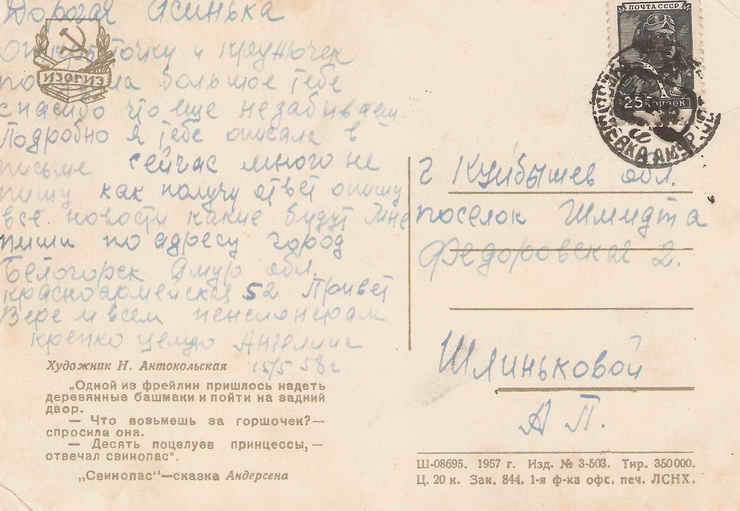 Дорогая Асинька
Открыточку и кружочек
большое тебе
спасибо что еще незабиваеш.
Подробно я тебе описала в
письме сейчас много не
пишу как получу ответ опишу
все новости какие будут мне
пиши по адресу город
Белогорск Амур обл.
Красноармейская 52 Привет
Вере и всем пенсионерам
крепко целую Ангелина
15/5 58 г
ИЗОГИЗ
Художник Н. Антокольская
„Одной из фрейлин пришлось надеть
деревянные башмаки и пойти на задний
двор.
— Что возьмешь за горшочек?—
спросила она.
— Десять поцелуев принцессы,—
отвечал свинопас".
„Свинопас"—сказка Андерсена
ПОЧТА СССР
25 КОПЕЕК
АМУР.
г Куйбышев обл.
поселок Шмидта
Федоровская 2.
Шлиньковой
А П.
Ш-08695. 1957 г. Изд. № 3-503. Тир. 350000.
Ц. 20 к. Зак. 844. 1-я ф-ка офс. печ. ЛСНХ.